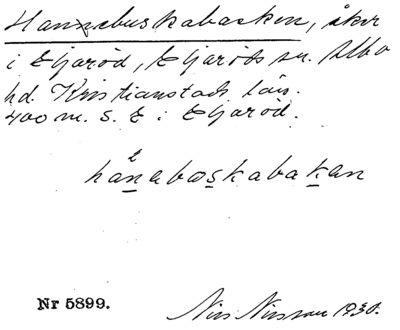 Hannabuskabacken, åker
i Eljaröd, Eljaröds sn. Albo
hd. Kristianstads län.
400 m. S. E i Eljaröd.
hanaboskabakan
Nr 5899.
Nils Nilsson 1930.